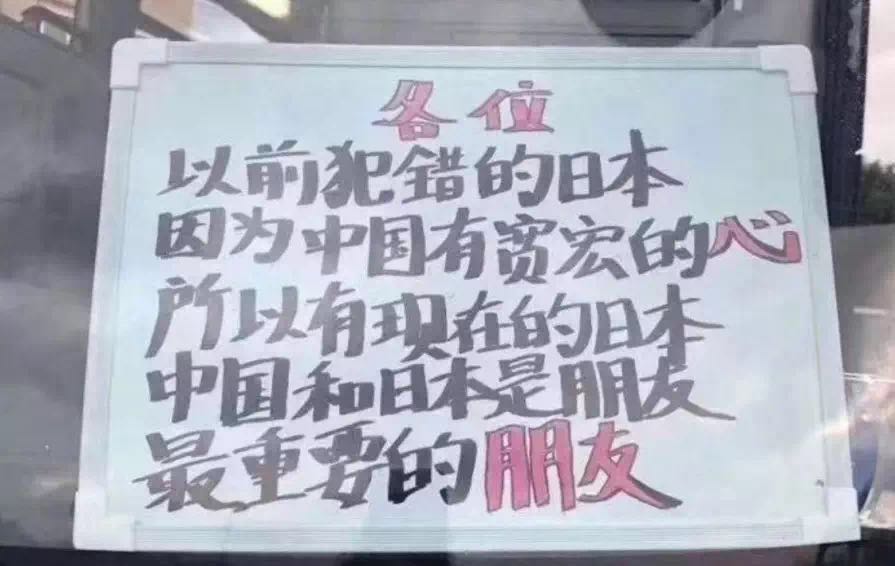 各位
以前犯错的日本
因为中国有宽宏的心
所以有现在的日本
中国和日本是朋友
最重要的朋友